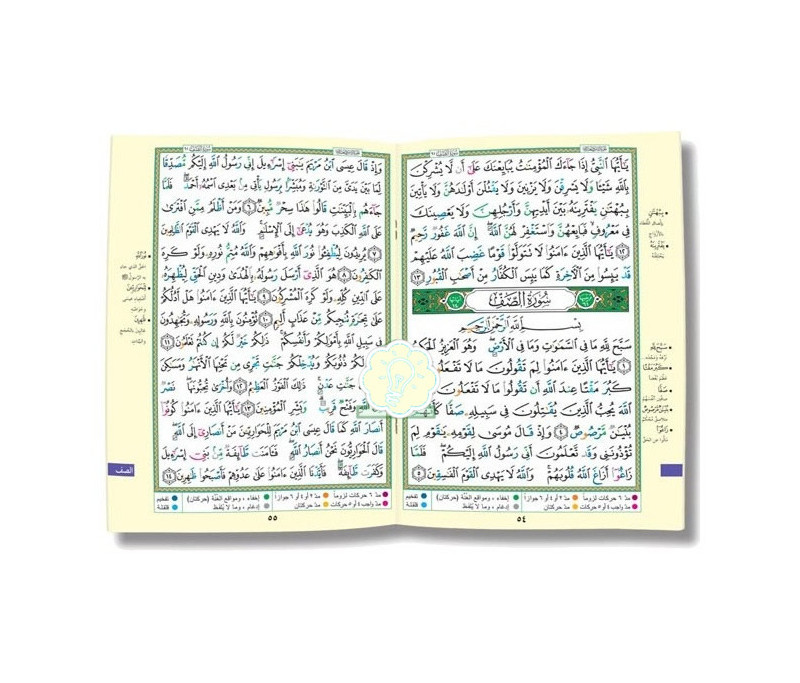 يَٰٓأَيُّهَا ٱلنَّبِىُّ إِذَا جَآءَكَ ٱلْمُؤْمِنَٰتُ يُبَايِعْنَكَ عَلَىٰٓ أَن لَّا يُشْرِكْنَ
بِٱللَّهِ شَيْـًٔا وَلَا يَسْرِقْنَ وَلَا يَزْنِينَ وَلَا يَقْتُلْنَ أَوْلَٰدَهُنَّ وَلَا يَأْتِينَ
بِبُهْتَٰنٍ يَفْتَرِينَهُۥ بَيْنَ أَيْدِيهِنَّ وَأَرْجُلِهِنَّ وَلَا يَعْصِينَكَ
فِى مَعْرُوفٍ فَبَايِعْهُنَّ وَٱسْتَغْفِرْ لَهُنَّ ٱللَّهَ إِنَّ ٱللَّهَ غَفُورٌ رَّحِيمٌ
١٢ يَٰٓأَيُّهَا ٱلَّذِينَ ءَامَنُوا۟ لَا تَتَوَلَّوْا۟ قَوْمًا غَضِبَ ٱللَّهُ عَلَيْهِمْ
قَدْ يَئِسُوا۟ مِنَ ٱلْءَاخِرَةِ كَمَا يَئِسَ ٱلْكُفَّارُ مِنْ أَصْحَٰبِ ٱلْقُبُورِ ١٣
سُورَةُ الصَّفِّ
بِسْمِ ٱللَّهِ ٱلرَّحْمَٰنِ ٱلرَّحِيمِ
سَبَّحَ لِلَّهِ مَا فِى ٱلسَّمَٰوَٰتِ وَمَا فِى ٱلْأَرْضِ وَهُوَ ٱلْعَزِيزُ ٱلْحَكِيمُ
١ يَٰٓأَيُّهَا ٱلَّذِينَ ءَامَنُوا۟ لِمَ تَقُولُونَ مَا لَا تَفْعَلُونَ
كَبُرَ مَقْتًا عِندَ ٱللَّهِ أَن تَقُولُوا۟ مَا لَا تَفْعَلُونَ
ٱللَّهَ يُحِبُّ ٱلَّذِينَ يُقَٰتِلُونَ فِى سَبِيلِهِۦ صَفًّا
بُنْيَٰنٌ مَّرْصُوصٌ ٤ وَإِذْ قَالَ مُوسَىٰ لِقَوْمِهِۦ يَٰقَوْمِ لِمَ
تُؤْذُونَنِى وَقَد تَّعْلَمُونَ أَنِّى رَسُولُ ٱللَّهِ إِلَيْكُمْ فَلَمَّا
زَاغُوٓا۟ أَزَاغَ ٱللَّهُ قُلُوبَهُمْ وَٱللَّهُ لَا يَهْدِى ٱلْقَوْمَ ٱلْفَٰسِقِينَ ٥
مدّ ٦ حركات لزوماً مدّ ٢ أو ٤ أو ٦ جوازاً إخفاء، ومواقع الغنّة (حركتان) تفخيم
مدّ واجب ٤ أو ٥ حركات مدّ حركتان إدغام، وما لا يُلفظ قلقلة
٥٤
وَإِذْ قَالَ عِيسَى ٱبْنُ مَرْيَمَ يَٰبَنِىٓ إِسْرَٰٓءِيلَ إِنِّى رَسُولُ ٱللَّهِ إِلَيْكُم مُّصَدِّقًا
لِّمَا بَيْنَ يَدَىَّ مِنَ ٱلتَّوْرَىٰةِ وَمُبَشِّرًۢا بِرَسُولٍ يَأْتِى مِنۢ بَعْدِى ٱسْمُهُۥٓ أَحْمَدُ فَلَمَّا
جَآءَهُم بِٱلْبَيِّنَٰتِ قَالُوا۟ هَٰذَا سِحْرٌ مُّبِينٌ ٦ وَمَنْ أَظْلَمُ مِمَّنِ ٱفْتَرَىٰ
عَلَى ٱللَّهِ ٱلْكَذِبَ وَهُوَ يُدْعَىٰٓ إِلَى ٱلْإِسْلَٰمِ وَٱللَّهُ لَا يَهْدِى ٱلْقَوْمَ ٱلظَّٰلِمِينَ
٧ يُرِيدُونَ لِيُطْفِـُٔوا۟ نُورَ ٱللَّهِ بِأَفْوَٰهِهِمْ وَٱللَّهُ مُتِمُّ نُورِهِۦ وَلَوْ كَرِهَ
ٱلْكَٰفِرُونَ ٨ هُوَ ٱلَّذِىٓ أَرْسَلَ رَسُولَهُۥ بِٱلْهُدَىٰ وَدِينِ ٱلْحَقِّ لِيُظْهِرَهُۥ
عَلَى ٱلدِّينِ كُلِّهِۦ وَلَوْ كَرِهَ ٱلْمُشْرِكُونَ ٩ يَٰٓأَيُّهَا ٱلَّذِينَ ءَامَنُوا۟ هَلْ أَدُلُّكُمْ
عَلَىٰ تِجَٰرَةٍ تُنجِيكُم مِّنْ عَذَابٍ أَلِيمٍ ١٠ تُؤْمِنُونَ بِٱللَّهِ وَرَسُولِهِۦ وَتُجَٰهِدُونَ
فِى سَبِيلِ ٱللَّهِ بِأَمْوَٰلِكُمْ وَأَنفُسِكُمْ ذَٰلِكُمْ خَيْرٌ لَّكُمْ إِن كُنتُمْ تَعْلَمُونَ ١١
لَكُمْ ذُنُوبَكُمْ وَيُدْخِلْكُمْ جَنَّٰتٍ تَجْرِى مِن تَحْتِهَا ٱلْأَنْهَٰرُ وَمَسَٰكِنَ
جَنَّٰتِ عَدْنٍ ذَٰلِكَ ٱلْفَوْزُ ٱلْعَظِيمُ ١٢ وَأُخْرَىٰ تُحِبُّونَهَا نَصْرٌ
ٱللَّهِ وَفَتْحٌ قَرِيبٌ وَبَشِّرِ ٱلْمُؤْمِنِينَ ١٣ يَٰٓأَيُّهَا ٱلَّذِينَ ءَامَنُوا۟ كُونُوٓا۟
أَنصَارَ ٱللَّهِ كَمَا قَالَ عِيسَى ٱبْنُ مَرْيَمَ لِلْحَوَارِيِّـۧنَ مَنْ أَنصَارِىٓ إِلَى ٱللَّهِ
قَالَ ٱلْحَوَارِيُّونَ نَحْنُ أَنصَارُ ٱللَّهِ فَـَٔامَنَت طَّآئِفَةٌ مِّنۢ بَنِىٓ إِسْرَٰٓءِيلَ
وَكَفَرَت طَّآئِفَةٌ فَأَيَّدْنَا ٱلَّذِينَ ءَامَنُوا۟ عَلَىٰ عَدُوِّهِمْ فَأَصْبَحُوا۟ ظَٰهِرِينَ ١٤
الصف
مدّ ٦ حركات لزوماً مدّ ٢ أو ٤ أو ٦ جوازاً إخفاء، ومواقع الغنّة (حركتان) تفخيم
مدّ واجب ٤ أو ٥ حركات مدّ حركتان إدغام، وما لا يُلفظ قلقلة
٥٥